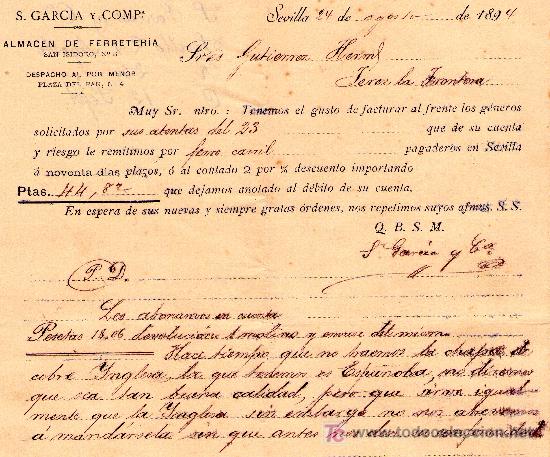 S. GARCÍA Y COMPª
Sevilla 24 de agosto de 1894
ALMACEN DE FERRETERÍA
SAN ISIDORO, Nº
DESPACHO AL POR MENOR
PLAZA DEL PAN, N. 4
Sres Gutierrez Hermˢ
Jerez la Frontera
Muy Sr. ntro.: Tenemos el gusto de facturar al frente los géneros
solicitados por sus atentas del 23 que de su cuenta
y riesgo le remitimos por ferro carril pagaderos en Sevilla
á noventa días plazos, ó al contado 2 por % descuento importando
Ptas. 44,87 que dejamos anotado al débito de su cuenta.
En espera de sus nuevas y siempre gratas órdenes, nos repetimos suyos afmos. S. S.
Q. B. S. M.
S. García y Cª
P. D.
Les abonamos en cuenta
Pesetas 18.06 devolucion 1 molino y envase del mismo
Hace tiempo que no traemos la chapa de
cobre Ynglesa, la que tenemos es Española, no diremos
que sea tan buena calidad, pero que sirve igual-
mente que la Ynglesa sin embargo no nos atrevemos
a mandársela sin que antes nos den su conformidad
todocoleccion.net